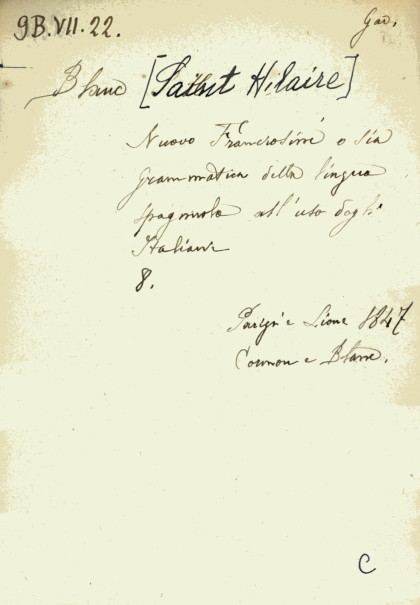 9B.VII.22.
Gad.
Blanc [Saint Hilaire]
Nuovo Franciosini o sia
grammatica della lingua
spagnuola all'uso degli
Italiani
8.
Parigi e Lione 1847
Cormon e Blanc.
C